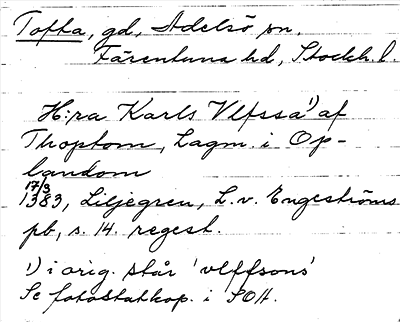 Tofta, gd, Adelsö sn,
Färentuna hd, Stockh. l.
H:ra Karls Vlfssa¹) af
Thoptom, Lagm. i Op-
landom
17/3
1383, Liljegren, L. v. Engeströms
pb, s. 14. regest.
¹) i orig. står 'vlffsons'
Se fotostatkop. i SOA.